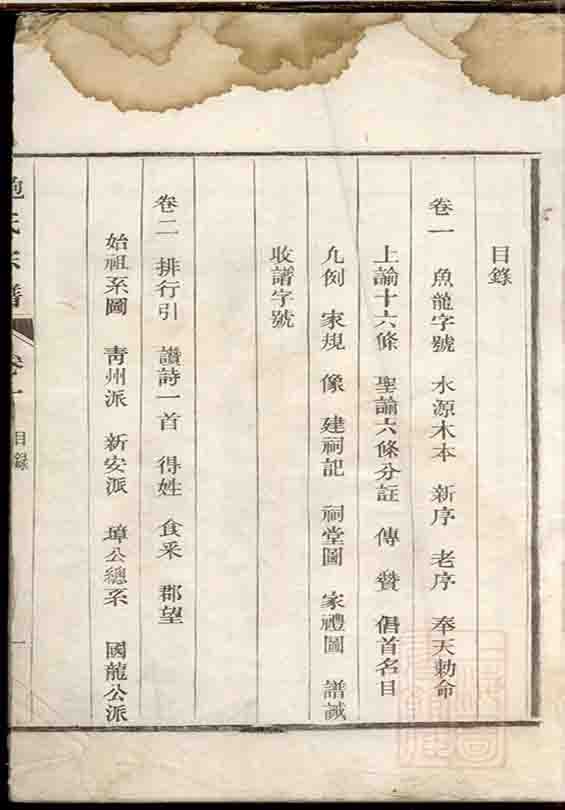 目錄
卷一 魚龍字號 水源木本 新序 老序 奉天勅命
上諭十六條 聖諭六條分註 傳 贊 倡首名目
凡例 家規 像 建祠記 祠堂圖 家禮圖 譜誡
收譜字號
卷二 排行引 讚詩一首 得姓 食采 郡望
始祖系圖 靑州派 新安派 璋公總系 國龍公派
鮑氏宗譜 卷一 目錄 一